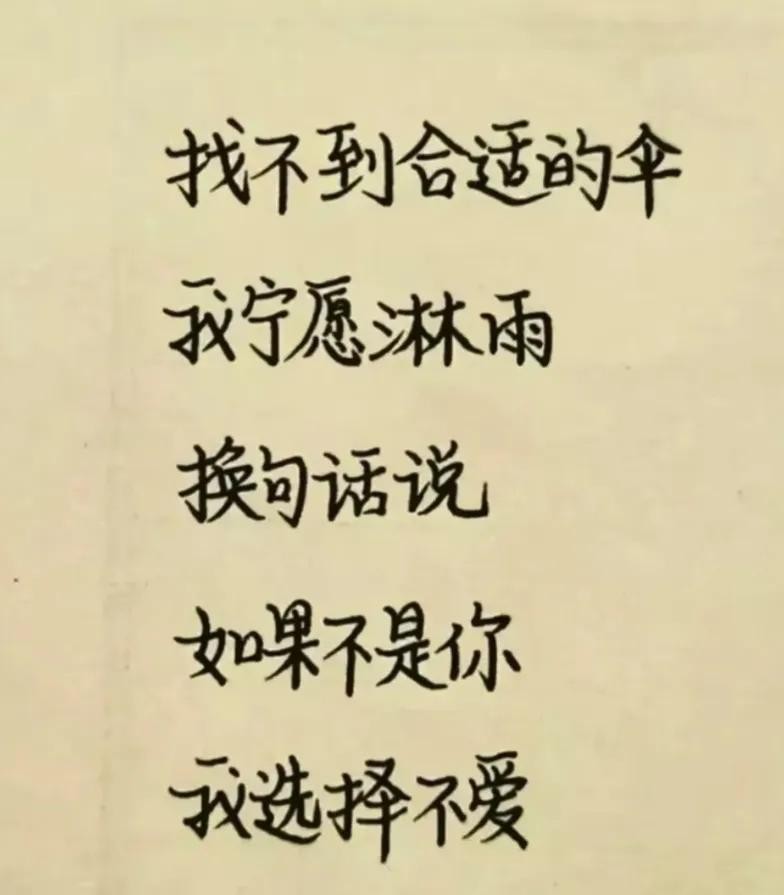 找不到合适的伞
我宁愿淋雨
换句话说
如果不是你
我选择不爱